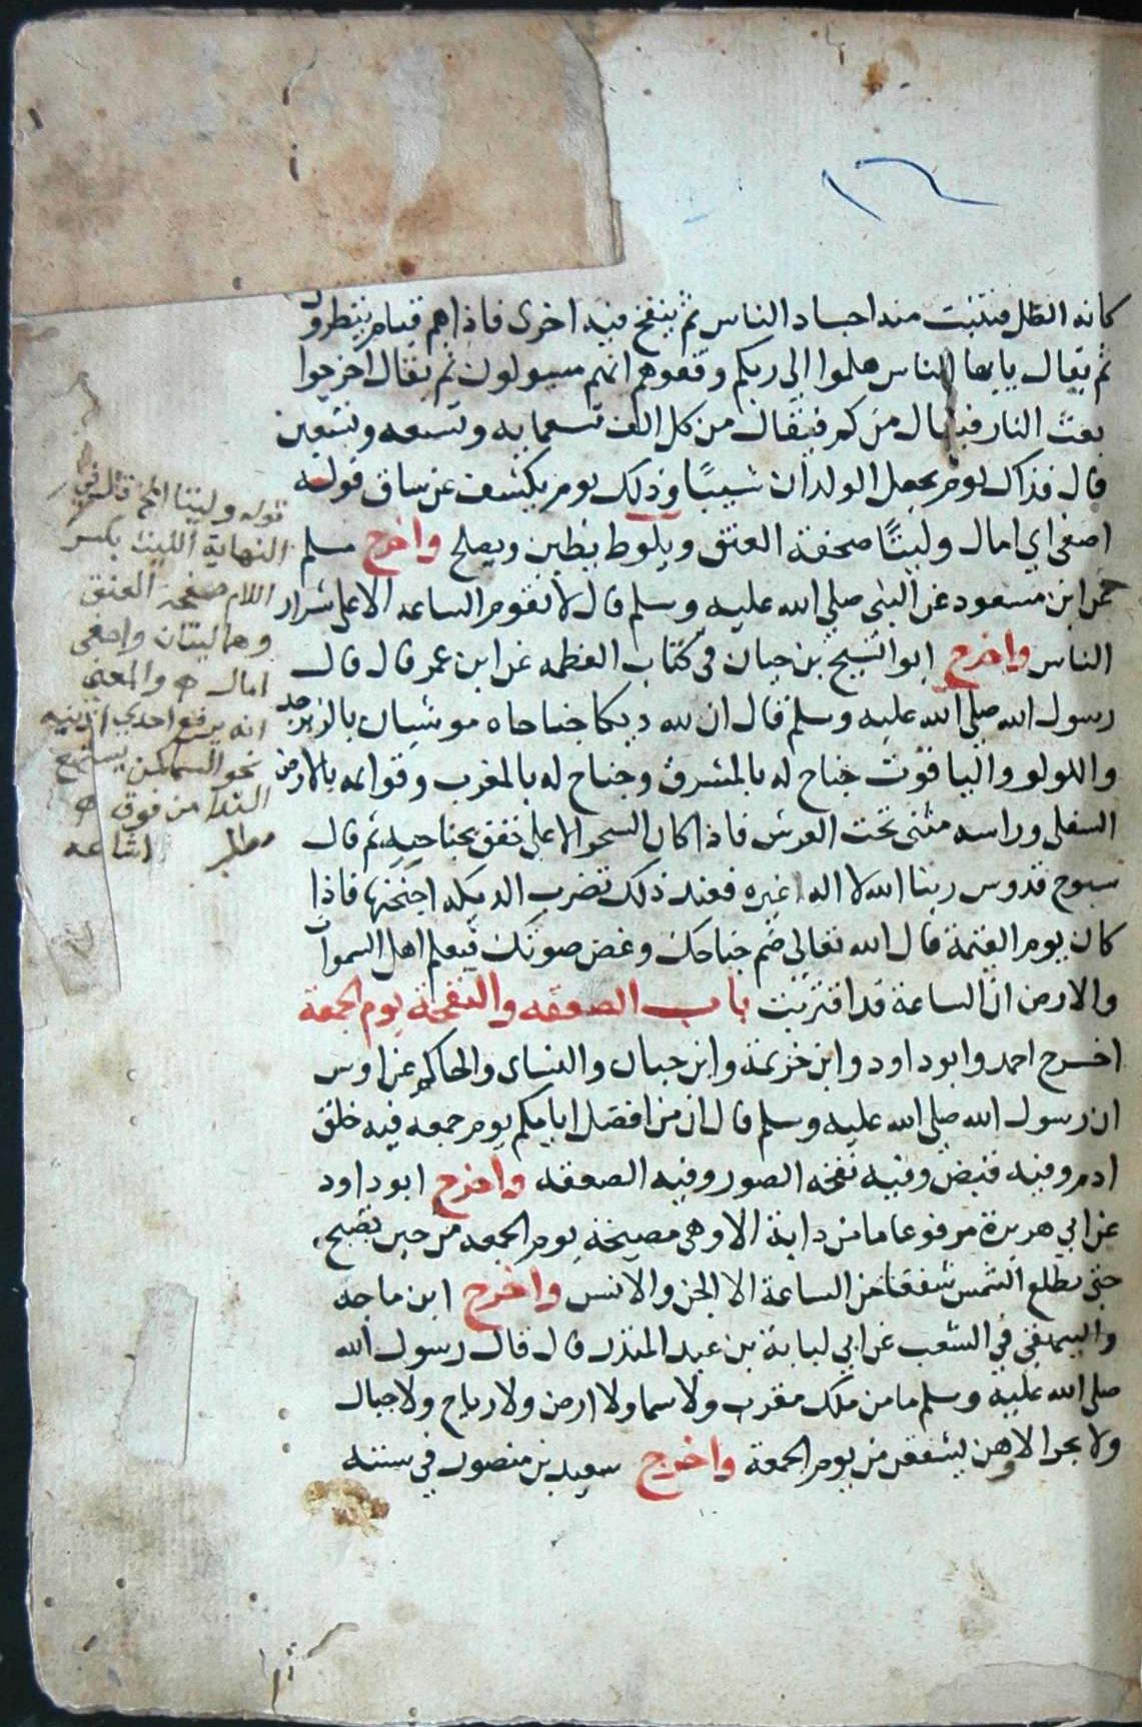 كانه الظل فتنبت منه اجساد الناس ثم ينفخ فيه اخرى فاذا هم قيام ينظرون
ثم يقال يا يها الناس هلموا الى ربكم وقفوهم انهم مسولون ثم يقال اخرجوا
بعث النار فيقال من كم فيقال من كل الف تسعمايه وتسعه وتسعين
قال فذاك يوم يجعل الولدان شيبًا وذلك يوم يكشف عن ساق قوله
اصغى اي امال وليتًا صحفة العنق ويلوط يطين ويصلح واخرج مسلم
عن ابن مسعود عن النبي صلى الله عليه وسلم قال لا تقوم الساعه الا على شرار
الناس واخرج ابو الشيخ بن حبان في كتاب العظمه عن ابن عمر قال قال
رسول الله صلى الله عليه وسلم قال ان لله ديكا جناحاه موشيان بالزبرجد
واللولو والياقوت جناح له بالمشرق وجناح له بالمغرب وقوايمه بالارض
السفلى وراسه مثنى تحت العرش فاذا كان السحر الاعلى خفق بجناحيه ثم قال
سبوح قدوس ربنا الله لا اله غيره فعند ذلك تضرب الديكه اجنحتها فاذا
كان يوم القيمة قال الله تعالى ضم جناحك وغض صوتك فيعلم اهل السموات
والارض ان الساعة قد اقتربت باب الصعقه والنفخة يوم الجمعة
اخرج احمد وابو داود وابن خزيمة وابن حبان والنساى والحاكم عن اوس
ان رسول الله صلى الله عليه وسلم قال ان من افضل ايامكم يوم جمعه فيه خلق
ادم وفيه قبض وفيه نفخه الصور وفيه الصعقه واخرج ابو داود
عن ابي هريرة مرفوعا ما من دابة الا وهى مصيخة يوم الجمعه من حين تصبح
حتى تطلع الشمس شفقا من الساعة الا الجن والانس واخرج ابن ماجه
والبيهقي في الشعب عن ابي لبابة بن عبد المنذر قال قال رسول الله
صلى الله عليه وسلم ما من ملك مقرب ولا سما ولا ارض ولا رياح ولا جبال
ولا بحر الا وهن يشفقن من يوم الجمعة واخرج سعيد بن منصور في سننه
قوله وليتا الخ قال في
النهاية الليت بكسر
اللام صفحة العنق
وهما ليتان واصغى
امال ه والمعنى
انه يرفع احدى اذنيه
نحو السما كمن يستمع
الندا من فوق ه
اشاعه